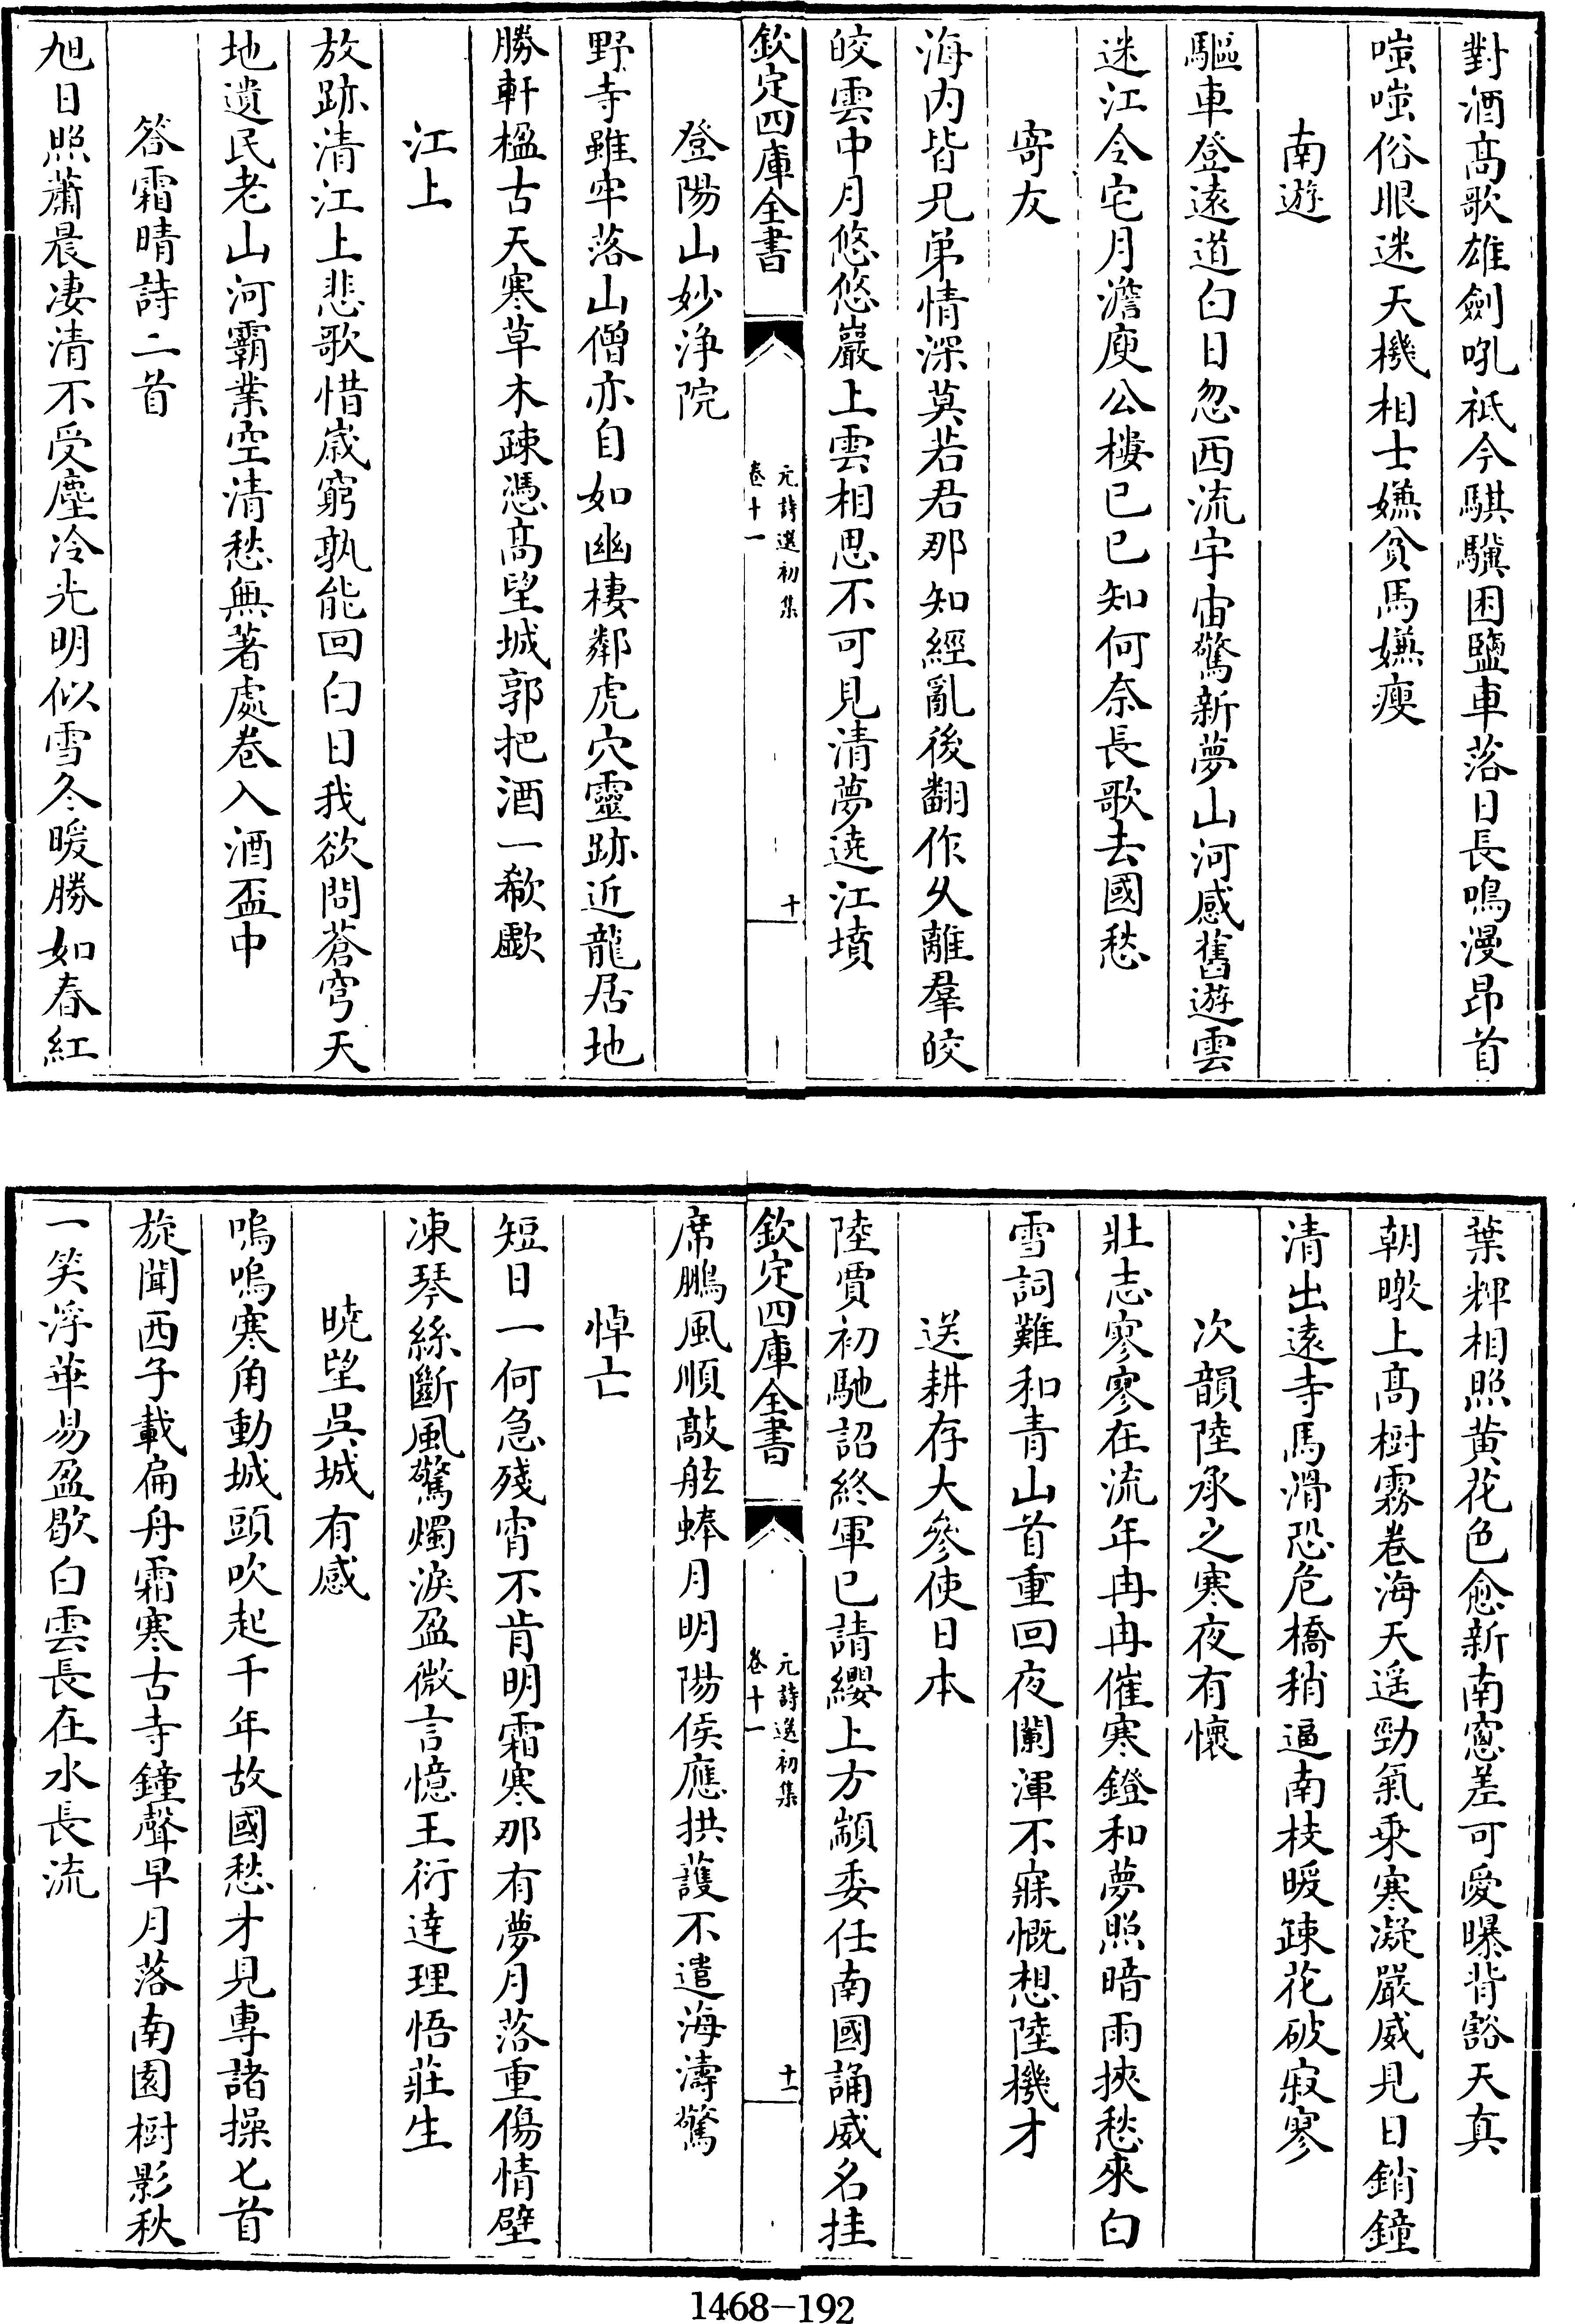 對酒高歌雄劍吼祇今騏驥困鹽車落日長鳴漫昻首
嗤嗤俗眼迷天機相士嫌貧馬嫌瘦
南遊
驅車登遠道白日忽西流宇宙驚新夢山河感舊遊雲
迷江令宅月澹庾公樓已巳知何奈長歌去國愁
寄友
海内皆兄弟情深莫若君那知經亂後翻作久離羣皎
皎雲中月悠悠巖上雲相思不可見清夢遶江墳
欽定四庫全書
元詩選初集
卷十一
十
登陽山妙淨院
野寺雖牢落山僧亦自如幽棲鄰虎穴靈跡近龍居地
勝軒楹古天寒草木疎憑高望城郭把酒一欷歔
江上
放跡清江上悲歌惜歲窮孰能回白日我欲問蒼穹天
地遺民老山河霸業空清愁無著處卷入酒盃中
答霜晴詩二首
旭日照蕭晨凄清不受塵冷光明似雪冬暖勝如春紅
葉輝相照黄花色愈新南窻差可愛曝背豁天真
朝暾上高樹霧卷海天遥勁氣乘寒凝嚴威見日銷鐘
清出遠寺馬滑恐危橋稍逼南枝暖疎花破寂寥
次韻陸承之寒夜有懷
壯志寥寥在流年冉冉催寒鐙和夢照暗雨挾愁來白
雪詞難和青山首重回夜闌渾不寐慨想陸機才
送耕存大參使日本
陸賈初馳詔終軍已請纓上方顓委任南國誦威名挂
欽定四庫全書
元詩選初集
卷十一
十一
席鵬風順敲舷蚌月明陽侯應拱護不遣海濤驚
悼亡
短日一何急殘宵不肯明霜寒那有夢月落重傷情壁
凍琴絲斷風驚燭淚盈微言憶王衍達理悟莊生
曉望吳城有感
嗚嗚寒角動城頭吹起千年故國愁才見專諸操匕首
旋聞西子載扁舟霜寒古寺鐘聲早月落南園樹影秋
一笑浮華易盈歇白雲長在水長流
1468-192